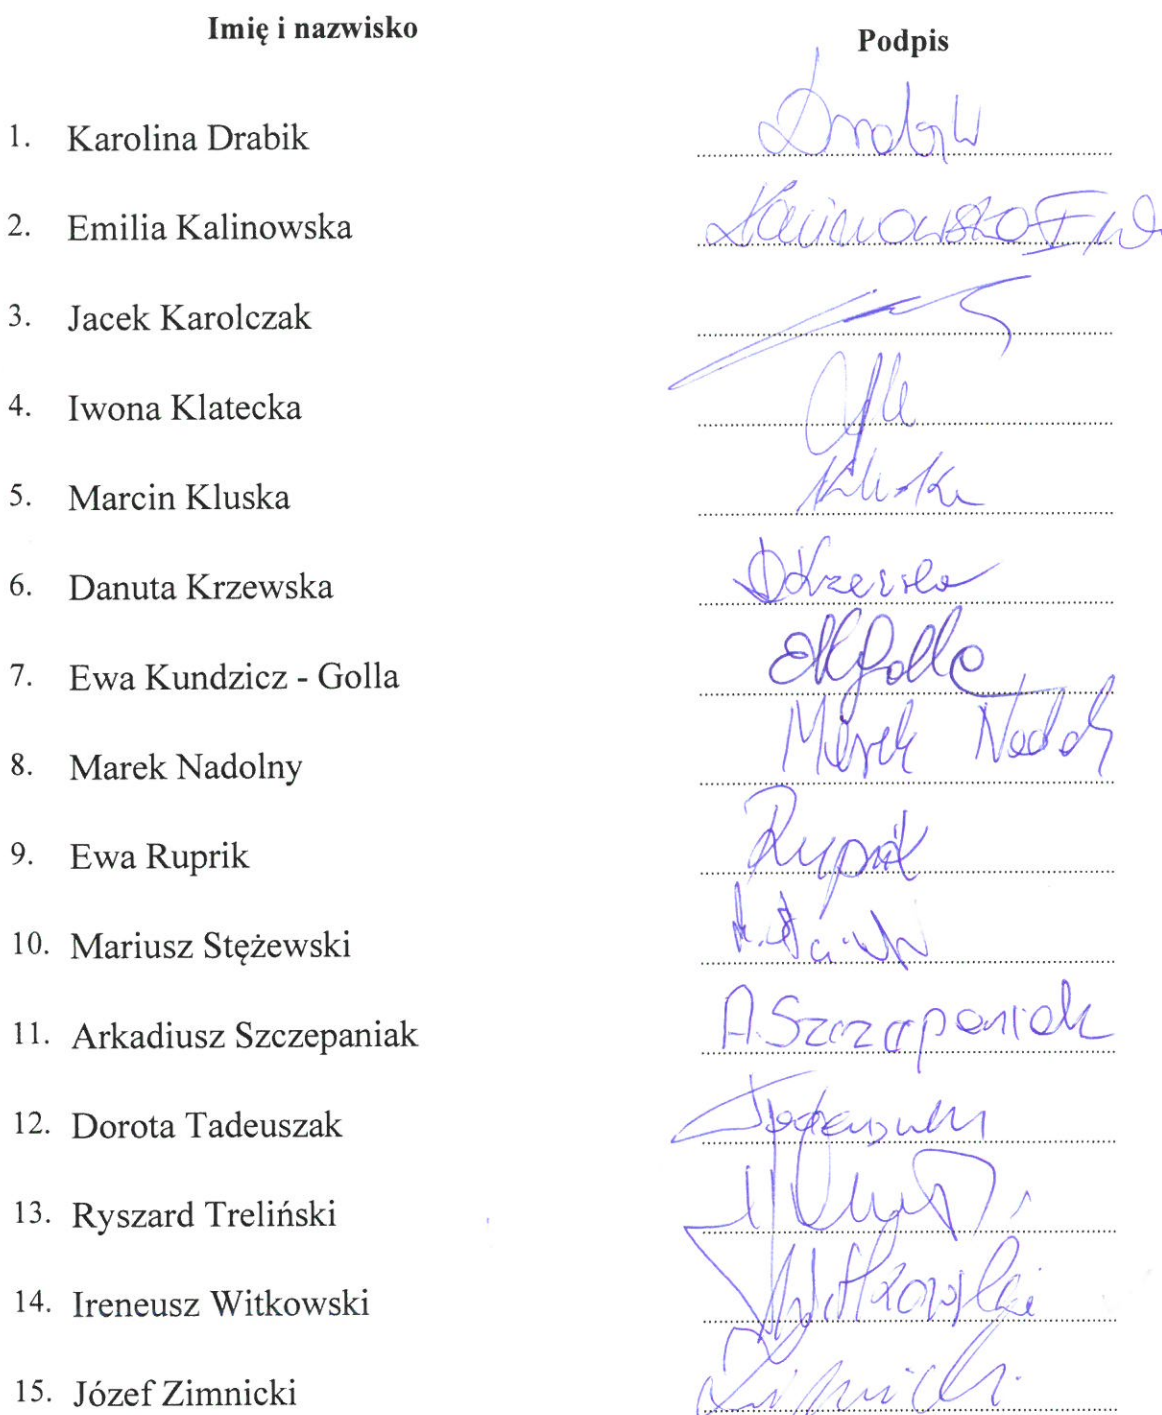 Imię i nazwisko Podpis
1. Karolina Drabik Drabik
2. Emilia Kalinowska Kalinowska
3. Jacek Karolczak
4. Iwona Klatecka
5. Marcin Kluska Kluska
6. Danuta Krzewska DKrzewska
7. Ewa Kundzicz - Golla EKGolla
8. Marek Nadolny Marek Nadol
9. Ewa Ruprik Ruprik
10. Mariusz Stężewski
11. Arkadiusz Szczepaniak A. Szczepaniak
12. Dorota Tadeuszak
13. Ryszard Treliński
14. Ireneusz Witkowski Witkowski
15. Józef Zimnicki Zimnicki